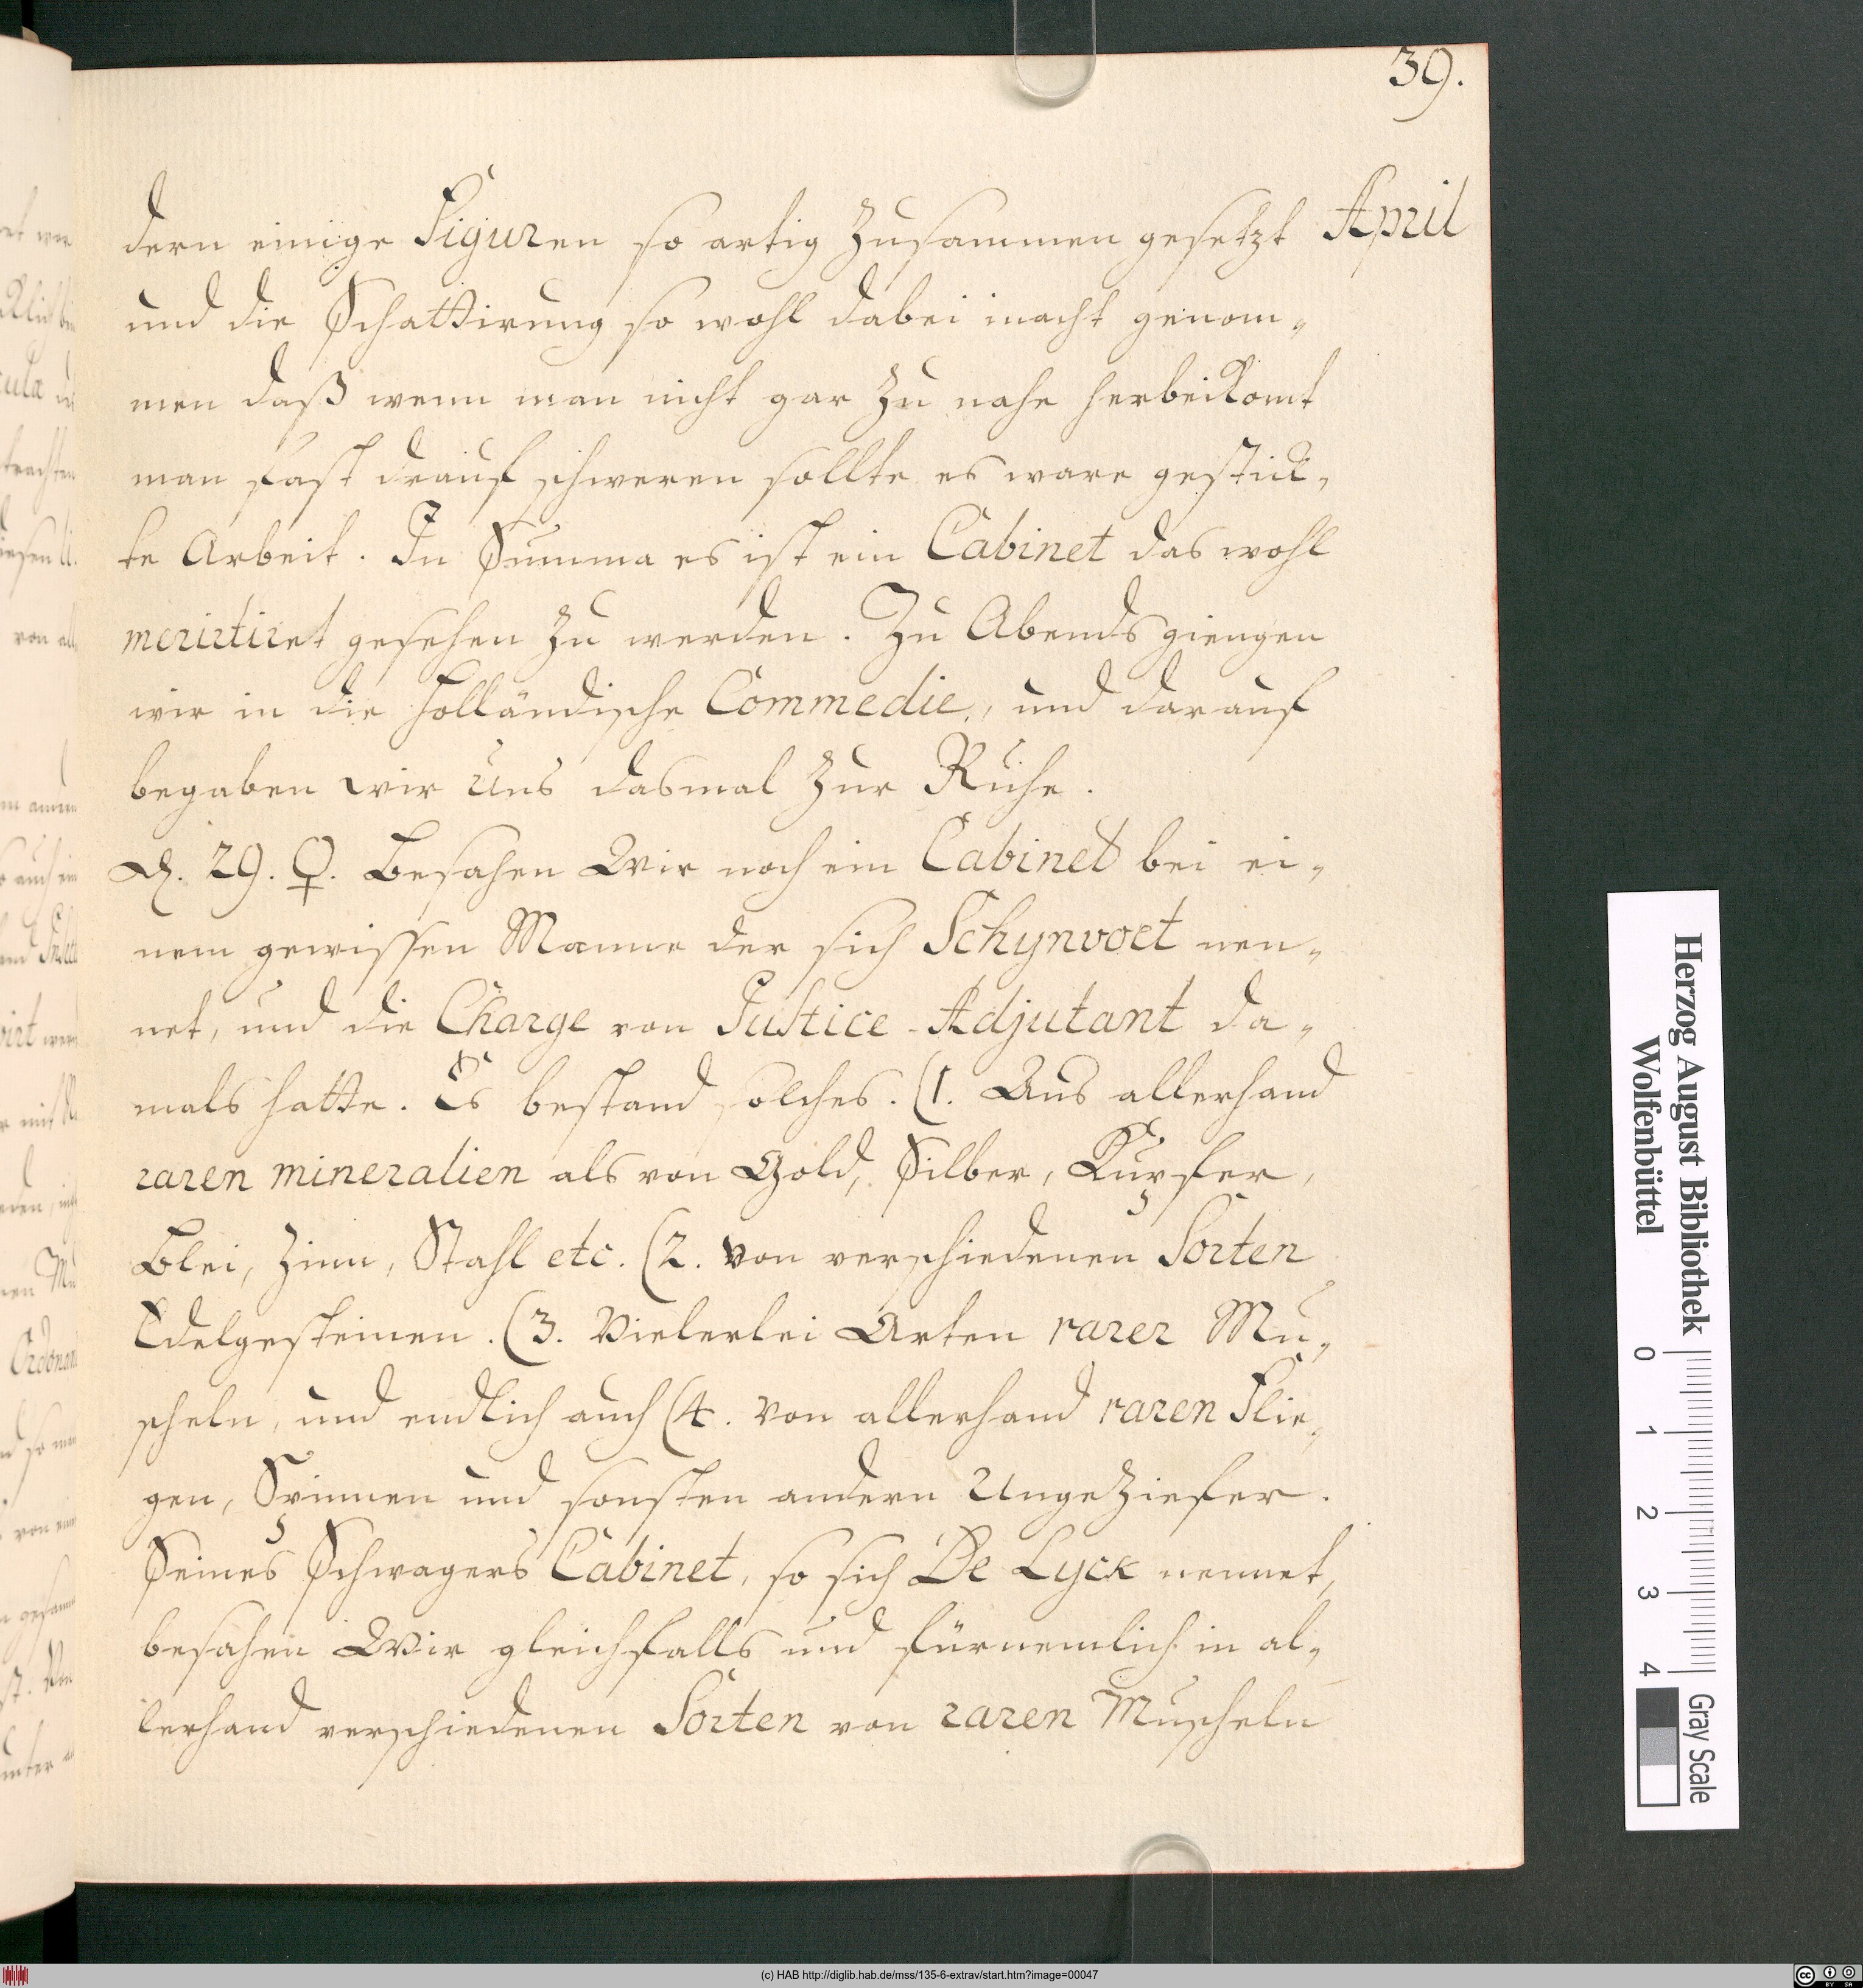 39.
April
dern einige Figuren so artig zusammen gesetzt
und die Schattirung so wohl dabei inacht genom-
men daß wenn man nicht gar zu nahe herbeikomt
man fast drauf schweren sollte es ware gestick-
te Arbeit. In Summa es ist ein Cabinet das wohl
merirtiret gesehen zu werden. Zu Abends giengen
wir in die holländische Commedie, und darauf
begaben wir uns dasmal zur Ruhe.
D. 29. ♀. Besahen Wir noch ein Cabinet bei ei-
nem gewissen Manne der sich Schynvoet nen-
net, und die Charge von Justice-Adjutant da-
mals hatte. Es bestand solches. (1. Aus allerhand
raren mineralien als von Gold, Silber, Kupfer,
Blei, Zinn, Stahl etc. (2. von verschiedenen Sorten
Edelgesteinen. (3. Vielerlei Arten rarer Mu-
scheln, und endlich auch (4. von allerhand raren Flie-
gen, Spinnen und sonsten andern Ungeziefer.
Seines Schwagers Cabinet, so sich De Lyck nennet,
besahen Wir gleichfalls und fürnemlich in al-
lerhand verschiedenen Sorten von raren Muscheln
Herzog August Bibliothek
Wolfenbüttel
0 1 2 3 4
Gray Scale
(c) HAB http://diglib.hab.de/mss/135-6-extrav/start.htm?image=00047